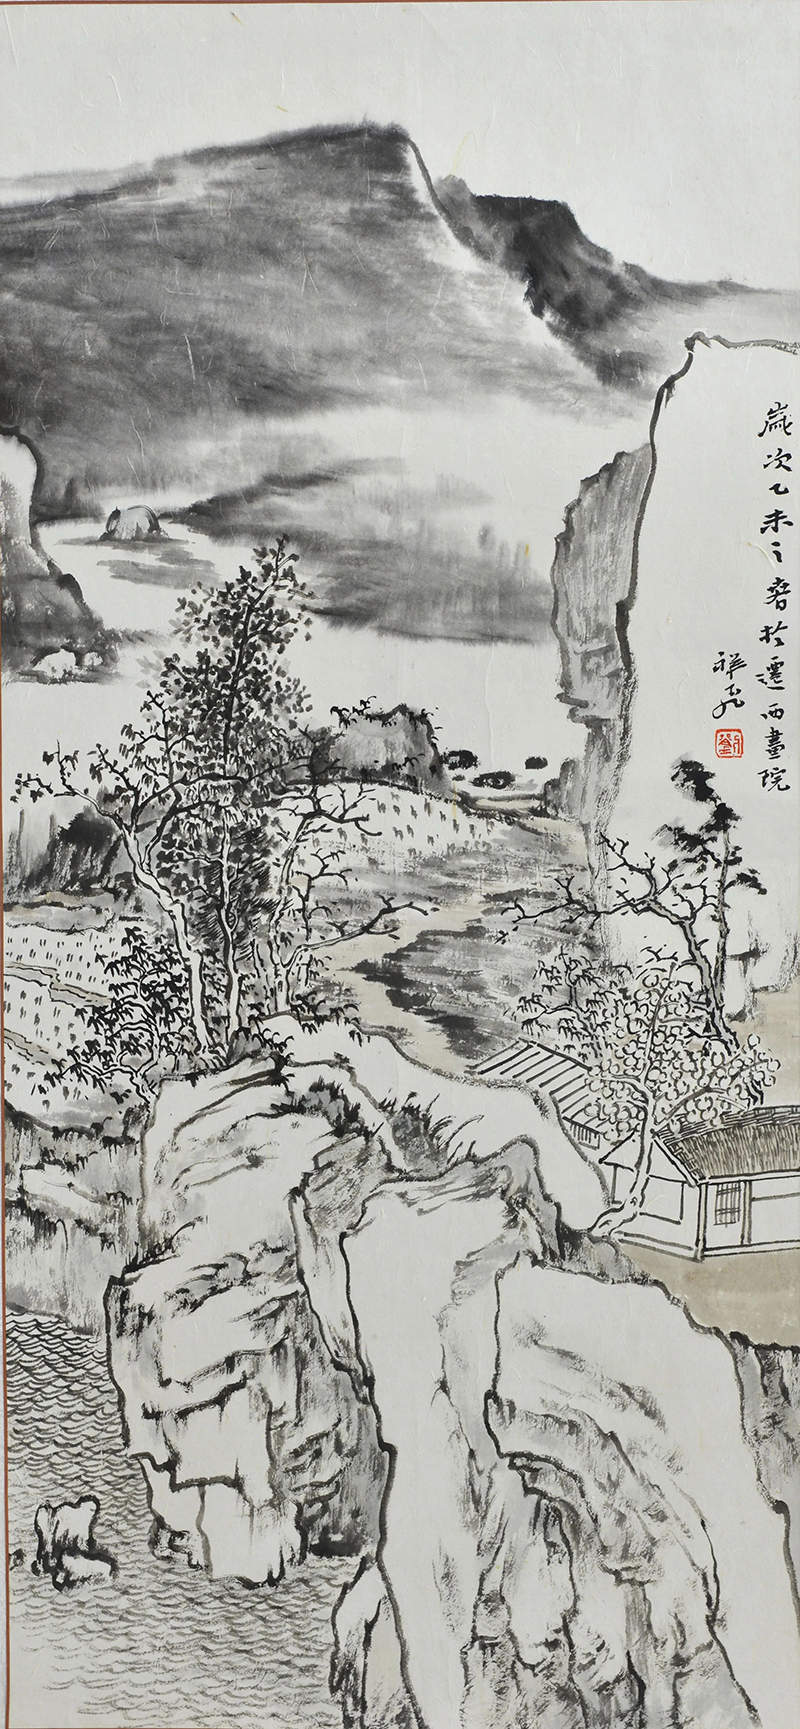 歲次乙未之春於遷西畫院
祥飛
劉